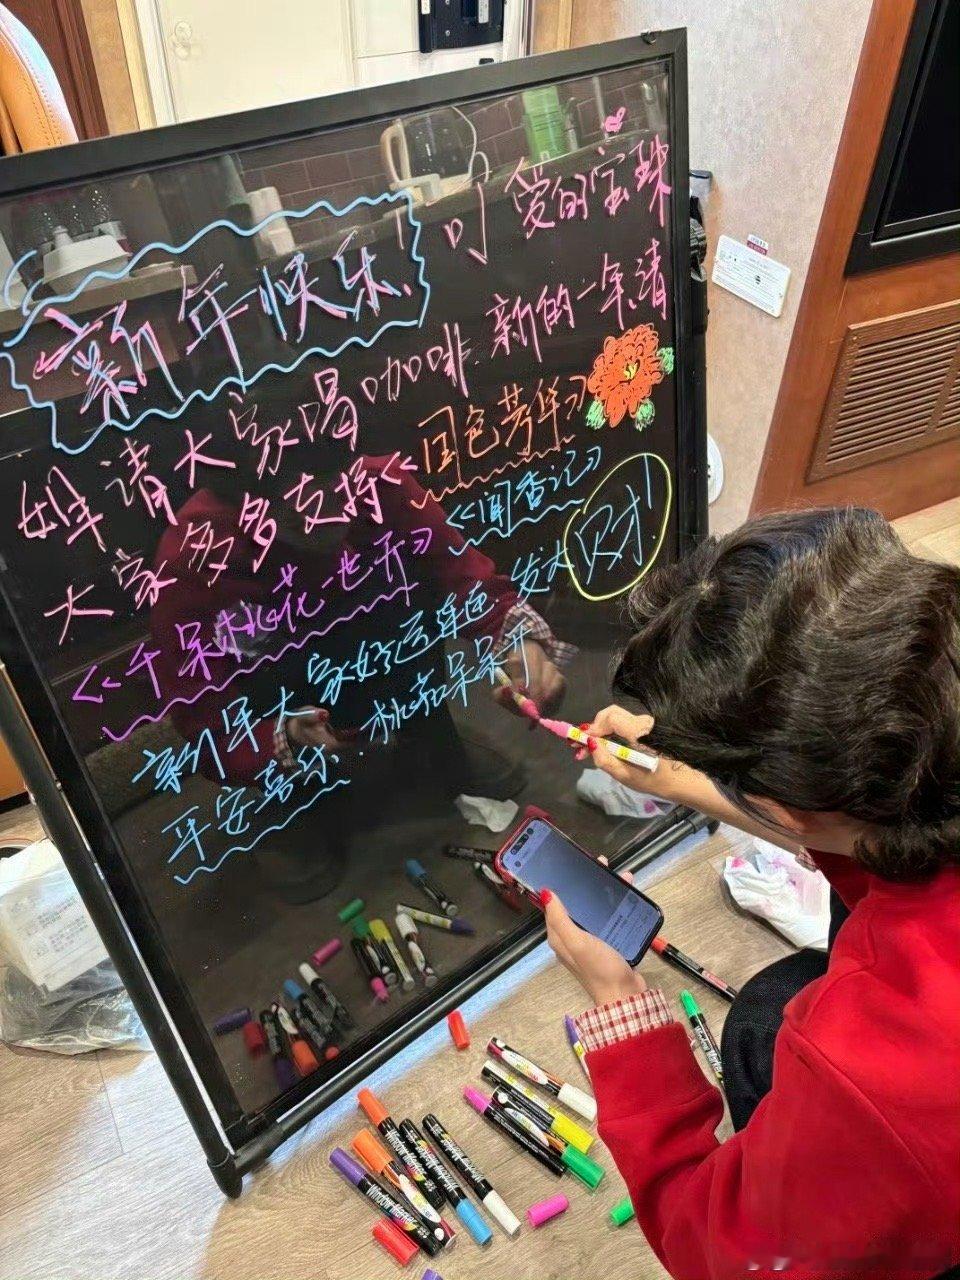 新年快乐! 可爱的宝珠
姐请大家喝咖啡.新的一年,请
大家多多支持《国色芳华》
《闻香记》
《千朵桃花一世开》
新年大家好运连连.发大财!
平安喜乐.桃花朵朵开
Window Marker
Window Marker
Window Marker